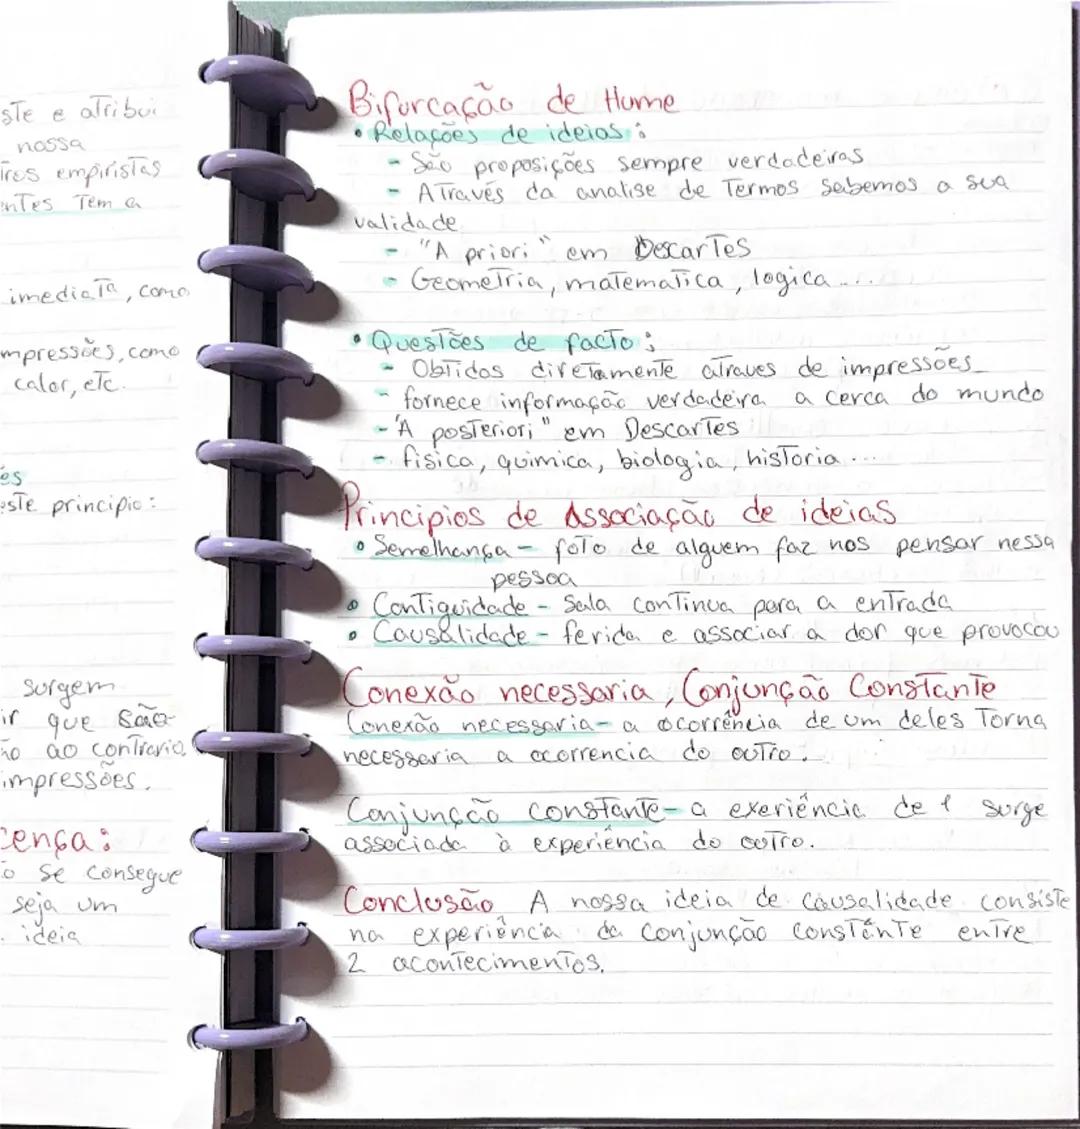 ste e atribui
nossa
tros empiristas
entes Tem a
imediata, como
mpressões, como
calor, etc.
es
este principio:
surgem
ir que são
ão ao contrario
impressões.
cença:
o se consegue
seja um
ideia
Bifurcação de Hume
• Relações de ideias:
- São proposições sempre verdadeiras
- Através da analise de Termos sabemos a sua
validade
- "A priori" em Descartes
- Geometria, matematica, logica....
• Questões de facto:
- Obtidas diretamente atraves de impressões
- fornece informação verdadeira a cerca do mundo
- "A posteriori" em Descartes
- fisica, quimica, biologia, historia...
Principios de Associação de ideias
• Semelhança - foto de alguem faz nos pensar nessa
pessoa
• Contiguidade - Sala continua para a entrada
• Causalidade - ferida e associar a dor que provocou
Conexão necessaria, Conjunção Constante
Conexão necessaria - a ocorrência de um deles Torna
necessaria a ocorrencia do outro.
Conjunção constante - a exeriência de 1 surge
associada à experiência do outro.
Conclusão A nossa ideia de causalidade consiste
na experiência da conjunção constante entre
2 acontecimentos.